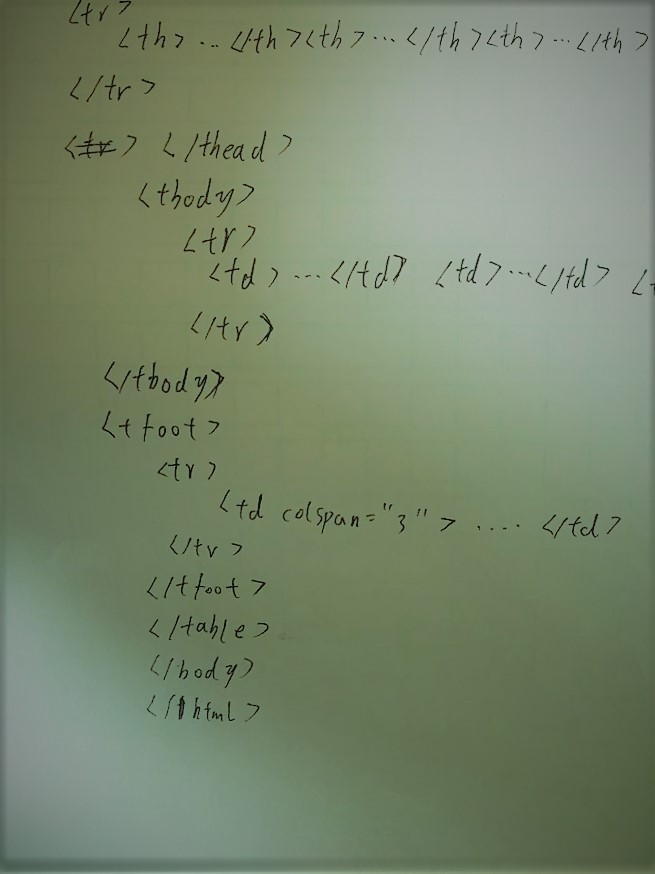 <tr>
<th> ... </th><th> ... </th><th> ... </th>
</tr>
</thead>
<tbody>
<tr>
<td> ... </td> <td> ... </td>
</tr>
</tbody>
<tfoot>
<tr>
<td colspan="3"> .... </td>
</tr>
</tfoot>
</table>
</body>
</html>